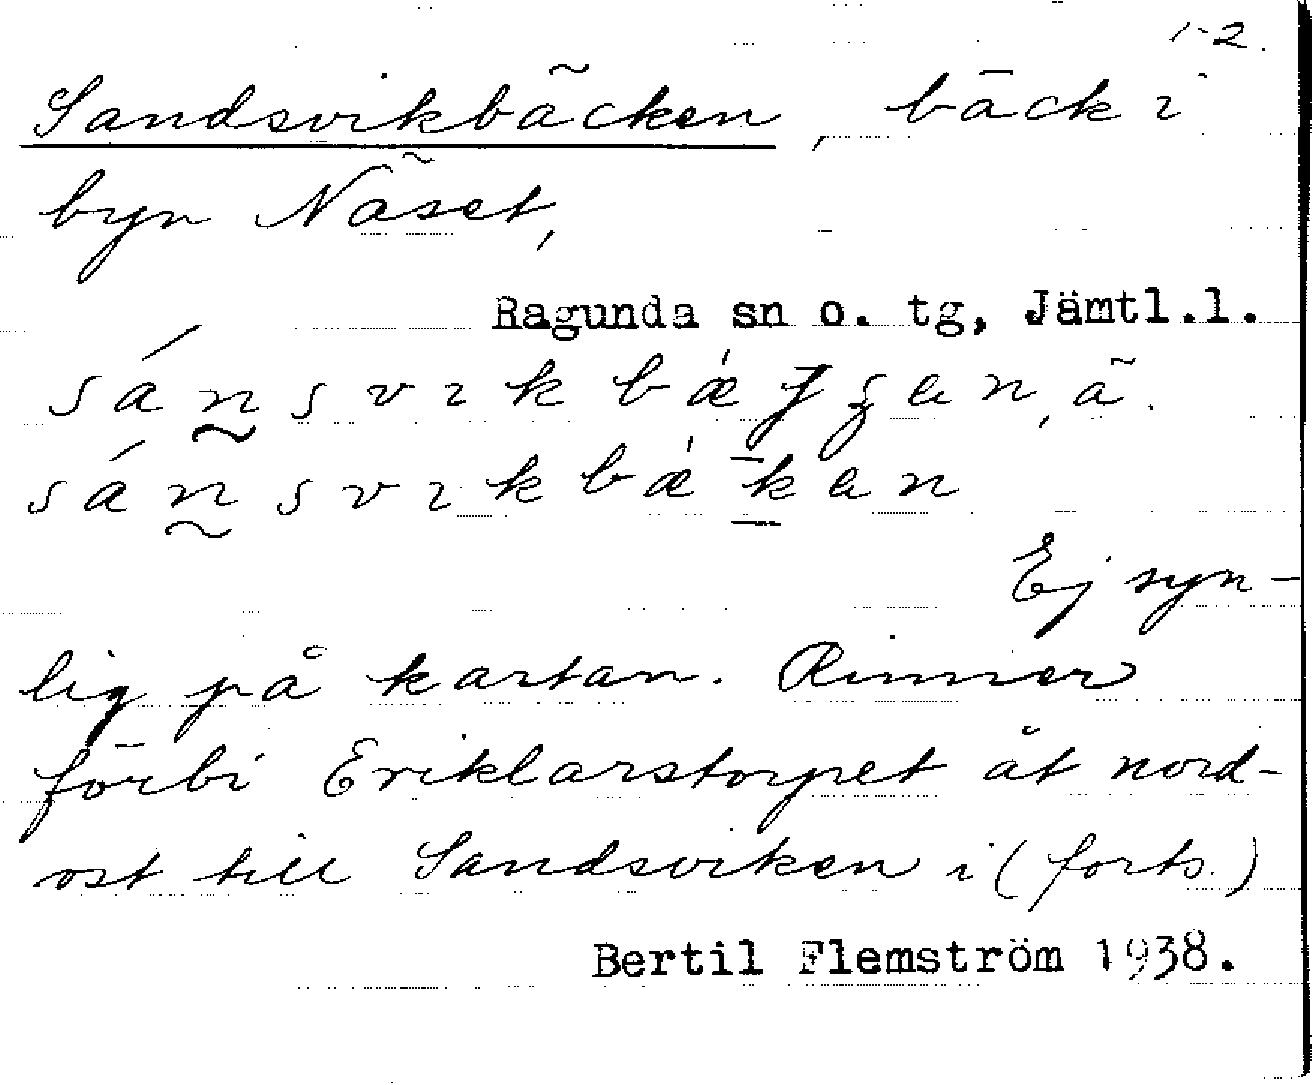 1-2.
Sandsvikbäcken, bäck i
byn Näset,
Ragunda sn o. tg, Jämtl.l.
Ej syn-
lig på kartan. Rinner
förbi Eriklarstorpet åt nord-
ost till Sandsviken i (forts.)
Bertil Flemström 1938.